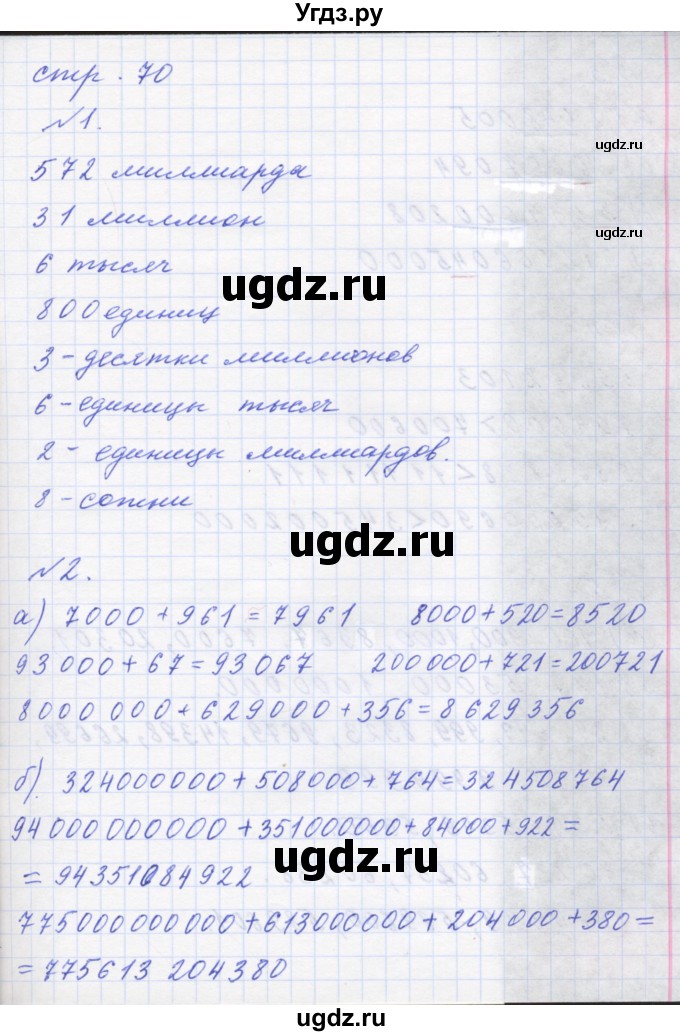 Угдз.ру
стр. 70
ugdz.ru
№1.
572 миллиарда
ugdz.ru
31 миллион
ugdz.ru
6 тысяч
ugdz.ru
800 единиц
3 - десятки миллионов
6 - единицы тысяч
2 - единицы миллиардов.
8 - сотни
ugdz.ru
№2.
а) 7000 + 961 = 7961 8000 + 520 = 8520
93 000 + 67 = 93 067 200 000 + 721 = 200 721
8 000 000 + 629000 + 356 = 8 629 356
б) 324000000 + 508000 + 764 = 324508764
94 000 000000 + 351000000 + 84000 + 922 =
ugdz.ru
= 94351084922
775000 000000 + 613000000 + 204 000 + 380 =
= 775613 204380
ugdz.ru